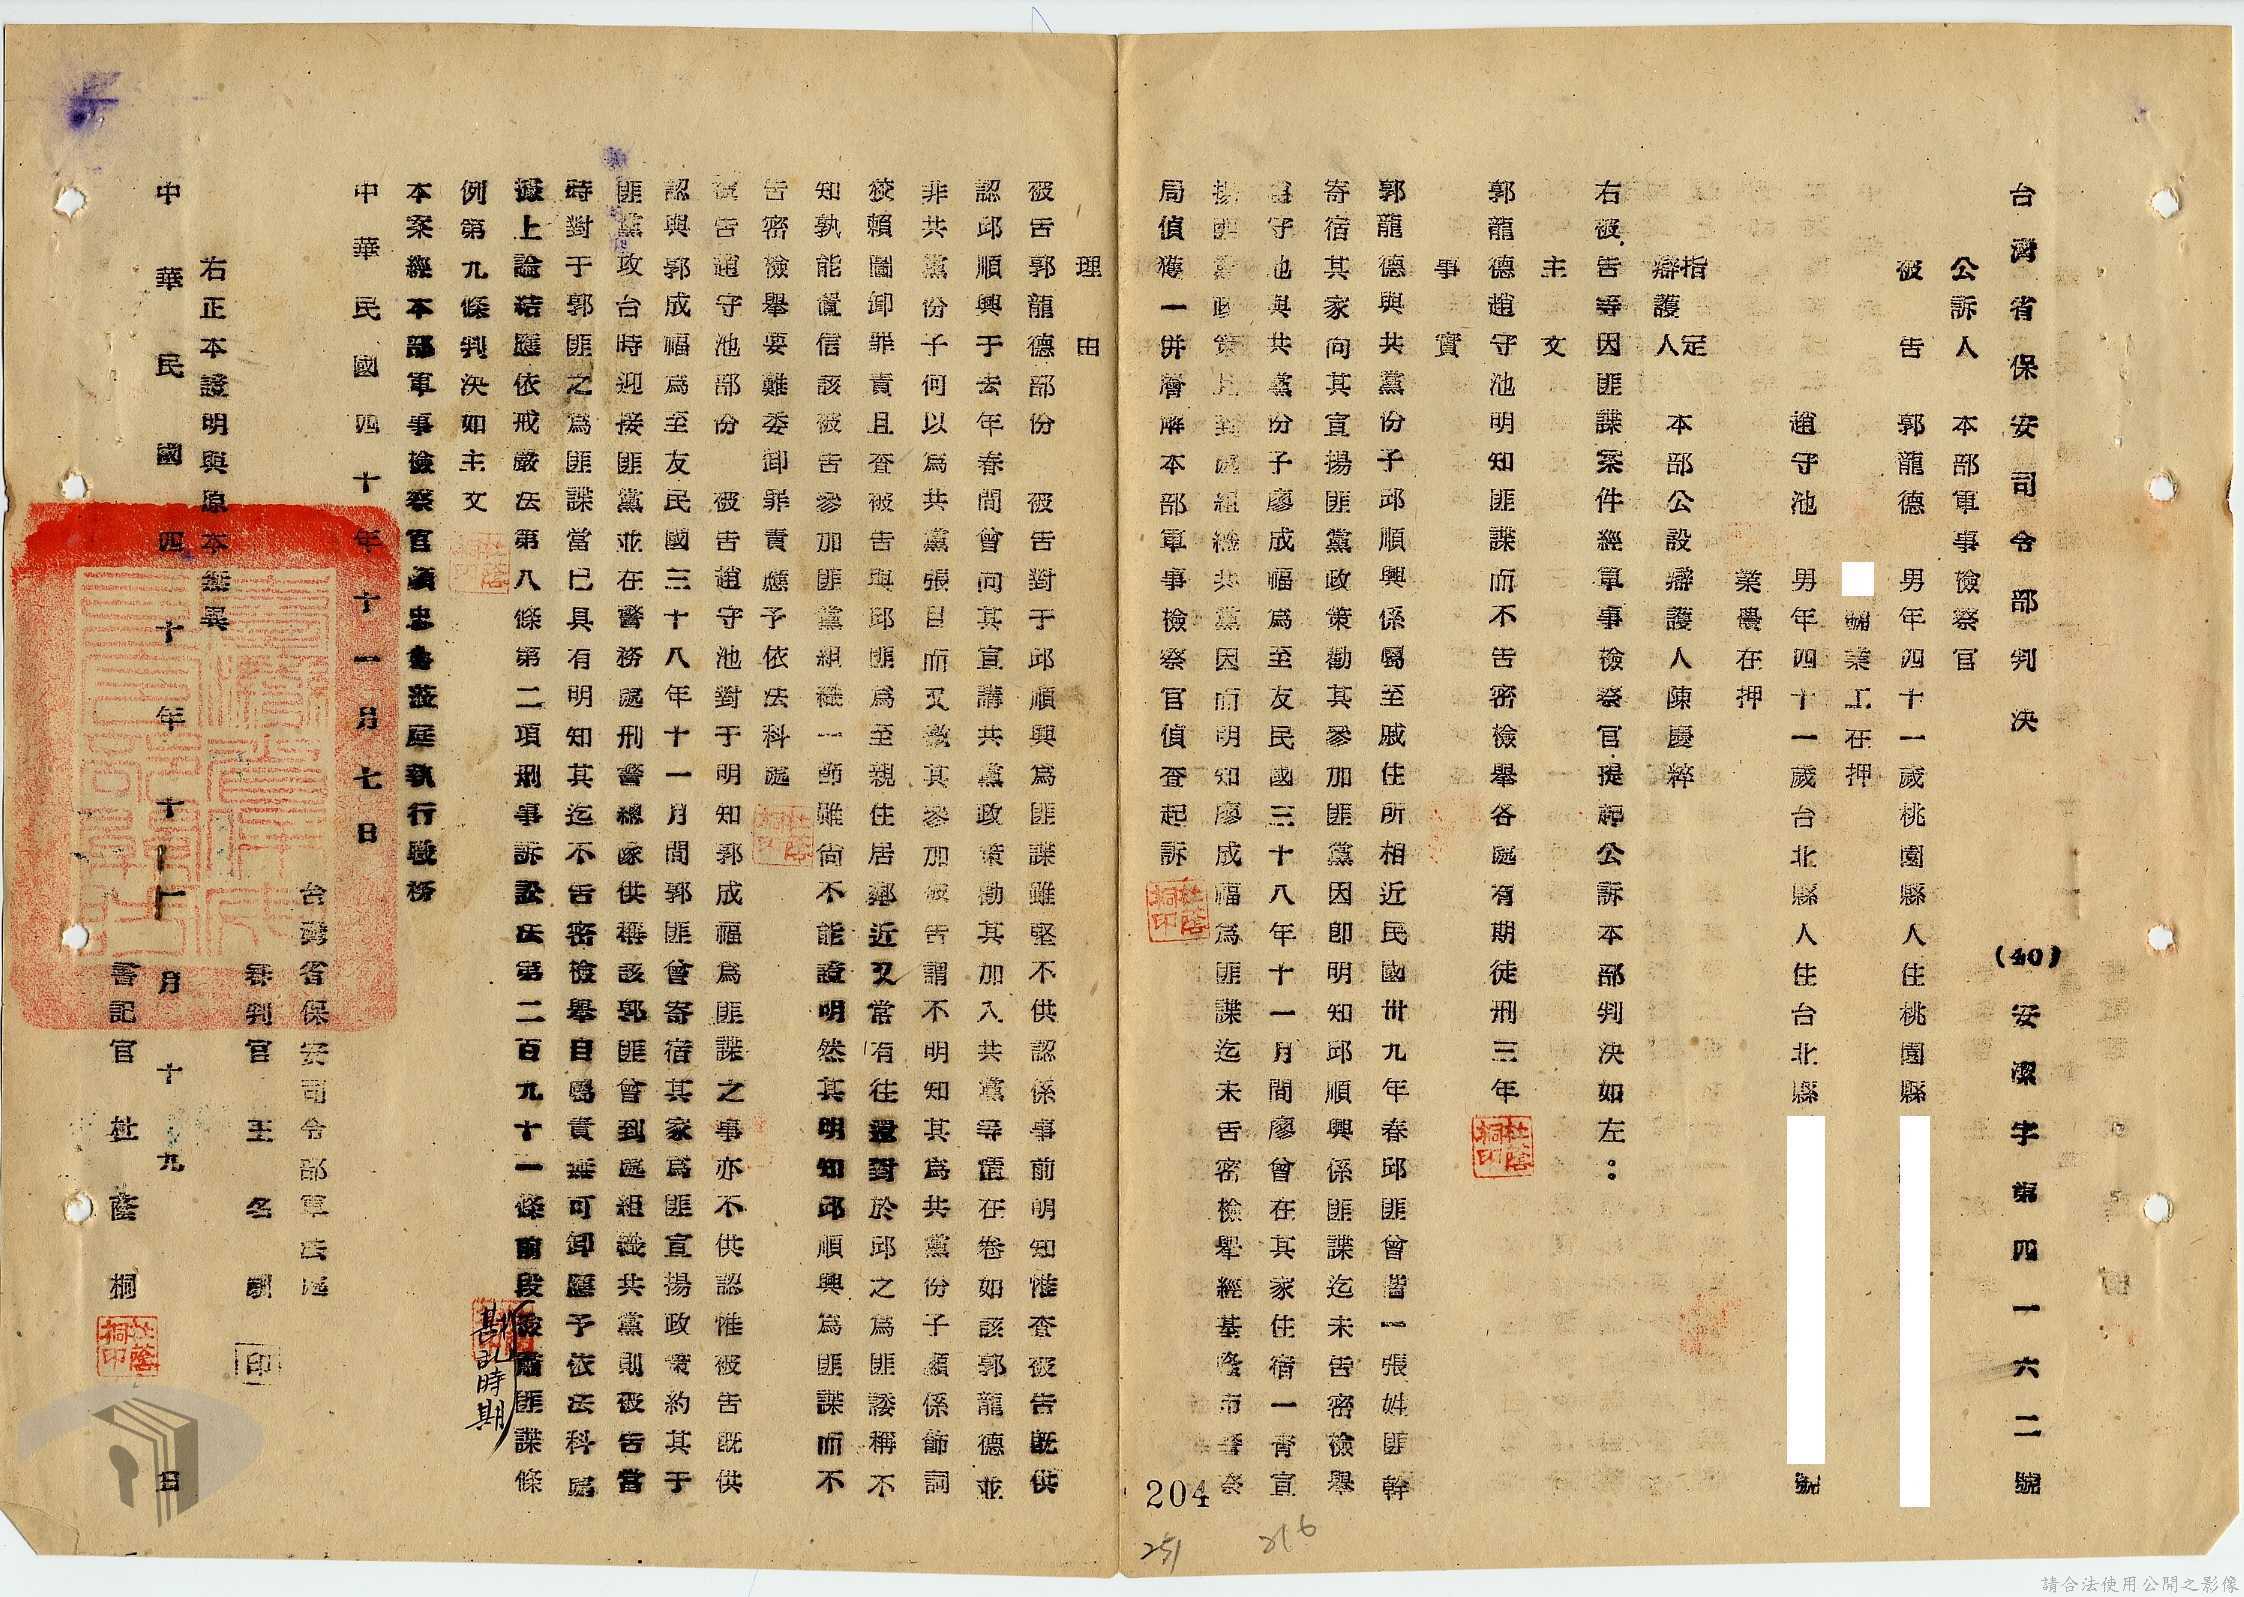 台灣省保安司令部判決
(40)安潔字第四一六二號
公訴人 本部軍事檢察官
被告 郭龍德 男年四十一歲桃園縣人住桃園縣
號業工在押
趙守池 男年四十一歲台北縣人住台北縣 號
業農在押
指定
辯護人 本部公設辯護人陳慶粹
右被告等因匪諜案件經軍事檢察官提起公訴本部判決如左:
主文
郭龍德趙守池明知匪諜而不告密檢舉各處有期徒刑三年
事實
郭龍德與共黨份子邱順興係屬至戚住所相近民國卅九年春邱匪曾偕一張姓匪幹
寄宿其家向其宣揚匪黨政策勸其參加匪黨因即明知邱順興係匪諜迄未告密檢舉
趙守池與共黨份子廖成福為至友民國三十八年十一月間廖曾在其家住宿一宵宣
揚匪黨政策 組織共黨因而明知廖成福為匪諜迄未告密檢舉經基隆市警察
局偵獲一併解本部軍事檢察官偵查起訴
理由
被告郭龍德部份 被告對于邱順興為匪諜雖堅不供認係事前明知惟查被告既供
認邱順興于去年春間曾向其宣講共黨政策勸其加入共黨等情在卷如該郭龍德並
非共黨份子何以為共黨張目而又勸其參加被告謂不明知其為共黨份子顯係飾詞
狡賴圖卸罪責且查被告與邱匪為至親住居鄰近又常有往還對於邱之為匪諉稱不
知孰能置信該被告參加匪黨組織一節雖尚不能證明然其明知邱順興為匪諜而不
告密檢舉要難委卸罪責應予依法科處
被告趙守池部份 被告趙守池對于明知郭成福為匪諜之事亦不供認惟被告既供
認與郭成福為至友民國三十八年十一月間郭匪曾寄宿其家為匪宣揚政策約其于
匪黨攻台時迎接匪黨並在警務處刑警總隊供稱該郭匪曾到處組織共黨則被告當
時對于郭匪之為匪諜當已具有明知其迄不告密檢舉自屬責無可卸應予依法科處
據上論結應依戒嚴法第八條第二項刑事訴訟法第二百九十一條前段檢肅匪諜條
戡亂時期
例第九條判決如主文
本案經本部軍事檢察官顧忠魯蒞庭執行職務
中華民國四十年十一月七日
台灣省保安司令部軍法處
審判官 王名馴 印
右正本證明與原本無異
中華民國四十年十一月十九日
書記官 杜蔭桐
杜蔭桐印
204
251
216
請合法使用公開之影像